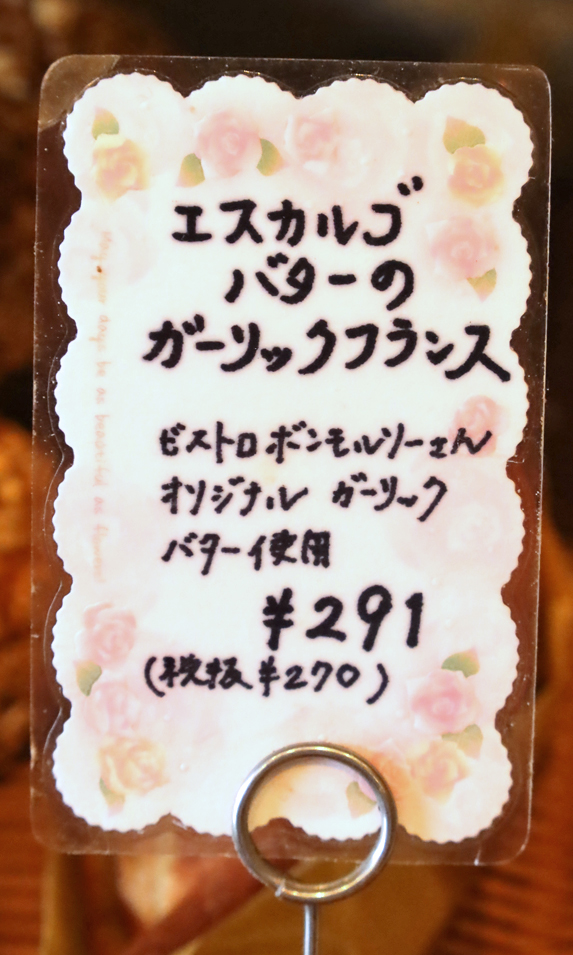 エスカルゴ
バターの
ガーリックフランス
ビストロボンモルソーさん
オリジナル ガーリック
バター使用
¥291
(税抜¥270)
May your days be as beautiful as flowers!